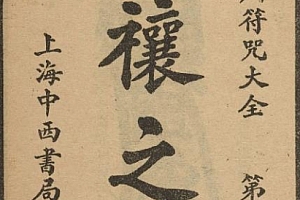 符咒大全 第
禳之
上海中西書局